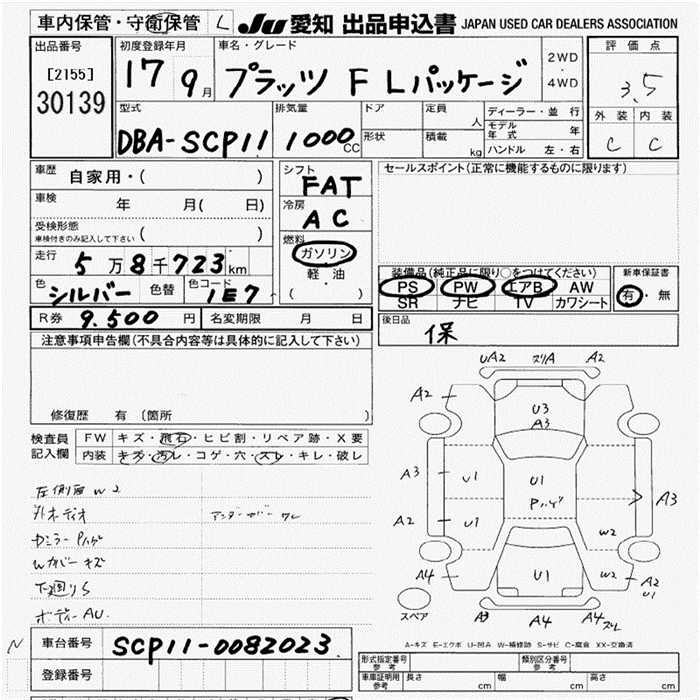 車内保管・守衛保管 L JU 愛知 出品申込書 JAPAN USED CAR DEALERS ASSOCIATION
出品番号 初度登録年月 車名・グレード 2WD 評価点
[2155] 17 9月 プラッツ F Lパッケージ ・ 3.5
30139 4WD
型式 排気量 ドア 定員 人 ディーラー・並行 外装 内装
DBA-SCP11 1000CC 形状 積載 kg モデル年式 年 C C
ハンドル 左・右
車歴 自家用・( ) シフト FAT セールスポイント(正常に機能するものに限ります)
車検 年 月( 日) 冷房 AC
受検形態 ( )
車検付きのみ記入して下さい
燃料 ガソリン
走行 5万8千723km 軽・油 装備品(純正品に限り○をつけてください) 新車保証書
色 シルバー 色替 色コード 1E7 ( ) PS PW エアB AW 有・無
SR ナビ TV カワシート
R券 9.500円 名変期限 月 日 後日品 保
注意事項申告欄(不具合内容等は具体的に記入して下さい)
修復歴 有 (箇所 )
検査員 FW キズ・飛石・ヒビ割・リペア跡・X要
記入欄 内装 キズ・汚レ・コゲ・穴・スレ・キレ・破レ
W2
外オーディオ アンダーカバーワレ
Wカバーキズ
下廻りS
ボディーAU.
UA2 スリA A2
A2 U3
A3
A3 U1 U1 A3
Pハゲ
A2 U1 W2
A4 U1 W2 A2
U1
スペア A3 A4 A4 スレ
A-キズ E-エクボ U-凹み W-補修跡 S-サビ C-腐食 XX-交換済
N 車台番号 SCP11-0082023
登録番号
形式指定番号 参考 類別区分番号 参考
車庫証明用 参考 長さ cm 幅 cm 高さ cm